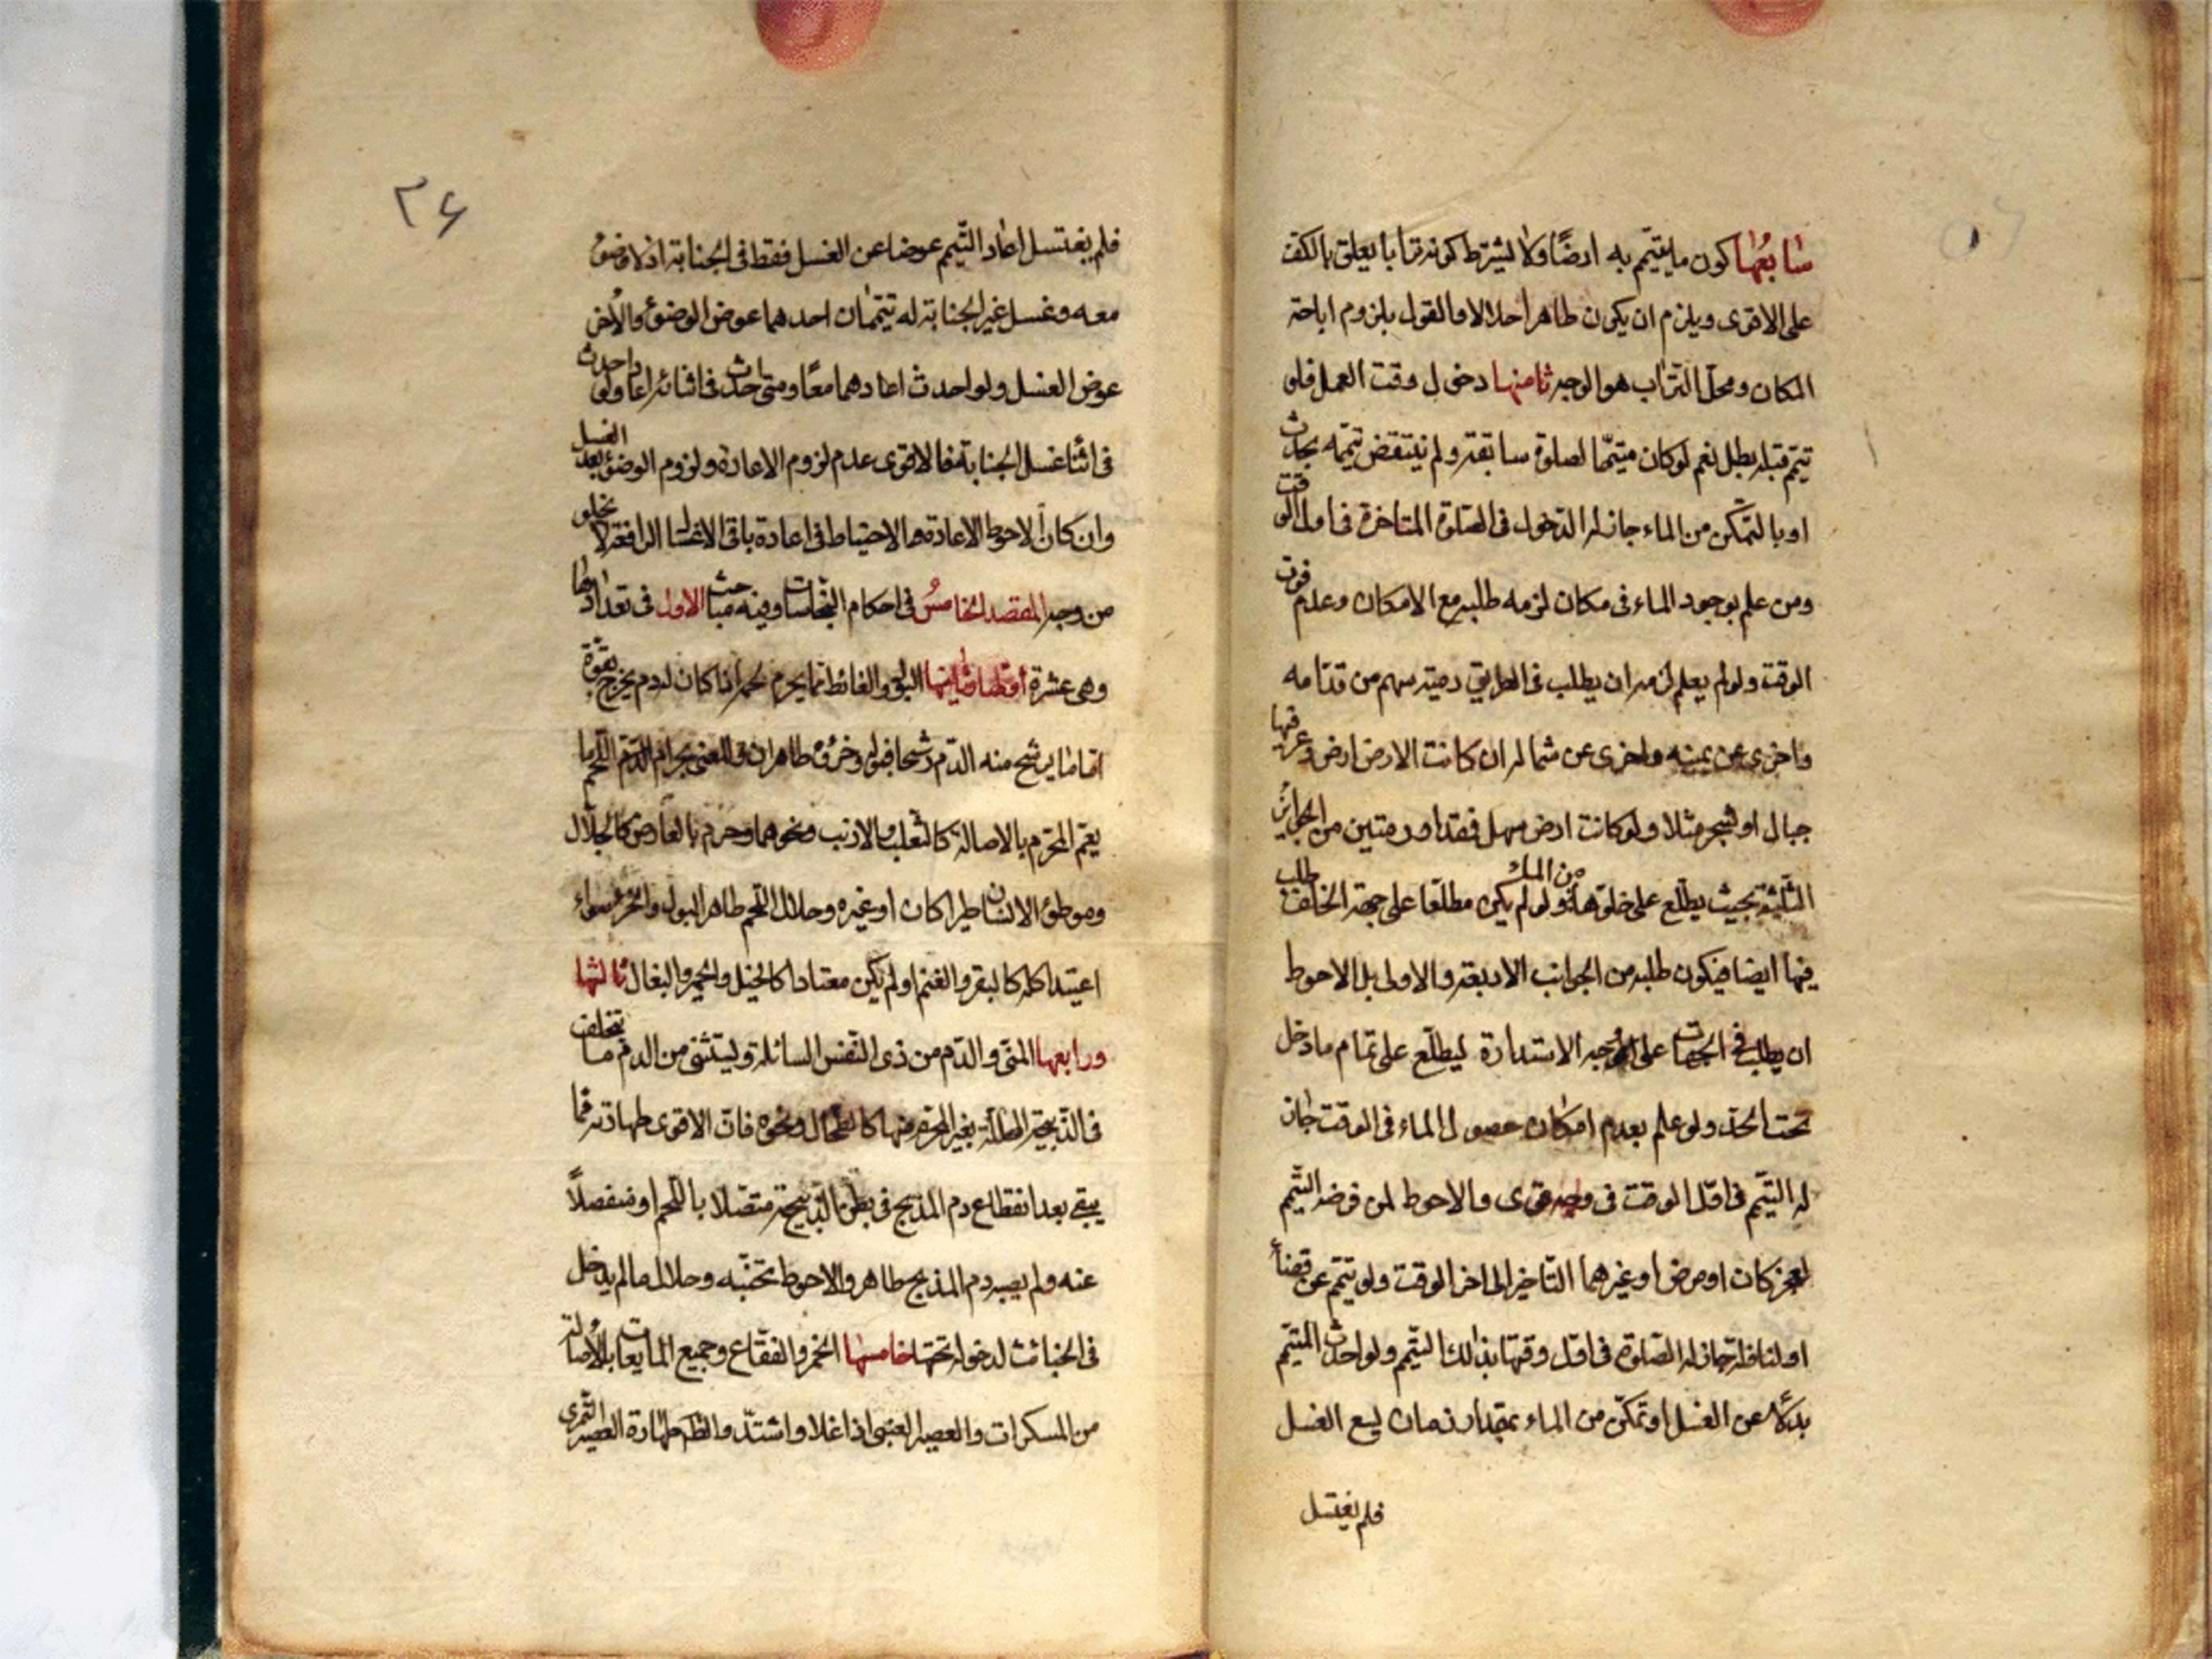 سابعها كون ما يتيمّم به ارضًا ولا يشترط كونه ترابا يعلق بالكف
على الاقوى ويلزم ان يكون طاهرا حلالا والقول بلزوم اباحة
المكان ومحل التراب هو الوجه ثامنها دخول وقت العمل فلو
تيمّم قبله بطل نعم لو كان متيمّما لصلوة سابقة ولم ينتقض تيممه بحدث
او بالتمكن من الماء جاز له الدخول فى الصلوة المتاخرة فى اول الوقت
ومن علم بوجود الماء فى مكان لزمه طلبه مع الامكان وعدم فوت
الوقت ولو لم يعلم لزمه ان يطلب فى الطريق رمية سهم من قدّامه
واخرى عن يمينه واخرى عن شماله ان كانت الارض ارض
جبال او شجر مثلا ولو كانت ارض سهل فقدر رميتين من الجوانب
الثلثة بحيث يطلع على خلوها من الماء ولو لم يكن مطلعا على جهة الخلف طلب
فيها ايضا فيكون طلبه من الجوانب الاربعة والاولى بل الاحوط
ان يطلب فى الجهات على وجه الاستدارة ليطلع على تمام ما دخل
تحت الحد ولو علم بعدم امكان حصول الماء فى الوقت جاز
له التيمّم فى اوّل الوقت فى وجه قوى والاحوط لمن فرضه التيمّم
لعجز كان او مرض او غيرهما التاخير الى اخر الوقت ولو تيمّم عن قضاء
او لنافلة جاز له الصلوة فى اوّل وقتها بذلك التيمّم ولو احدث المتيمّم
بدلا عن الغسل او تمكّن من الماء بمقدار زمان يسع الغسل
فلم يغتسل
٢٦
فلم يغتسل اعاد التيمّم عوضا عن الغسل فقط فى الجنابة اذ لا وضوء
معه وغسل غير الجنابة له تيممان احدهما عوض الوضوء والاخر
عوض الغسل ولو احدث اعادهما معًا ومتى حدث فى اثنائه اعاد ولو احدث
فى اثنا غسل الجنابة فالاقوى عدم لزوم الاعادة ولزوم الوضوء بعد الغسل
وان كان الاحوط الاعادة والاحتياط فى اعادة باقى الاغسال الرافعة لا يخلو
من وجه المقصد الخامس فى احكام النجاسات وفيه مباحث الاول فى تعدادها
وهى عشرة اوّلها وثانيها البول والغائط مما يحرم لحمه اذا كان له دم يخرج بقوة
امّا ما يرشح منه الدّم رشحا فبوله وخرؤه طاهران والمعنى بحرام اللحم ما
يعم المحرّم بالاصالة كالثعلب والارنب ونحوهما وحرم بالعارض كالجلّال
وموطوء الانسان طيرا كان او غيره وحلال اللحم طاهر البول والخرء سواء
اعتيد اكله كالبقر والغنم او لم يكن معتادا كالخيل والحمير والبغال ثالثها
ورابعها المنى والدّم من ذى النّفس السائلة ويستثنى من الدم ما تخلف
فى الذّبيحة المحللة بغير المحرّم منها كالطحال ونحوه فان الاقوى طهارته فما
يبقى بعد انقطاع دم المذبح فى بطن الذبيحة متصلا باللحم او منفصلاً
عنه ولم يصبه دم المذبح طاهر والاحوط تجنبه وحلال ما لم يدخل
فى الخبائث لدخوله تحتها خامسها الخمر والفقّاع وجميع المايعات بالاصالة
من المسكرات والعصير العنبى اذا غلا واشتدّ والظاهر طهارة العصير التمرى